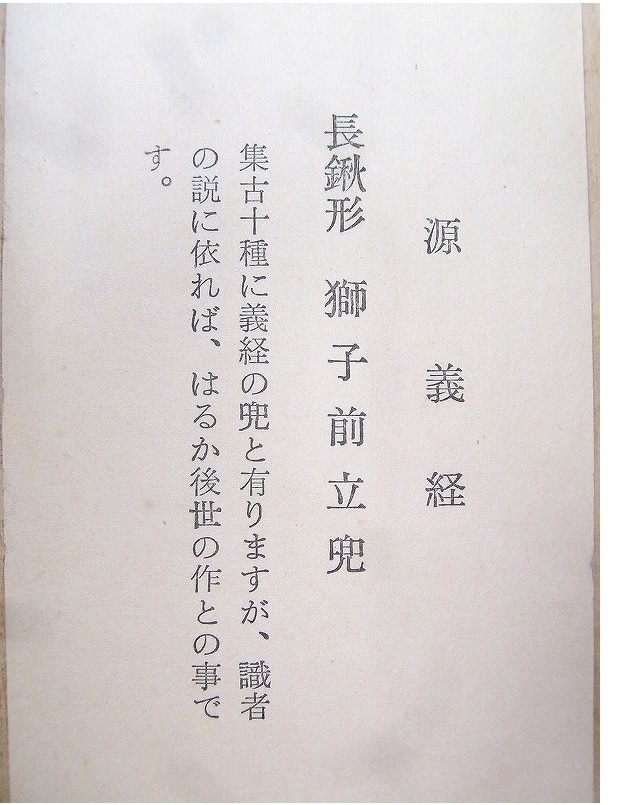 源義経
長鍬形　獅子前立兜
集古十種に義経の兜と有りますが、識者
の説に依れば、はるか後世の作との事で
す。